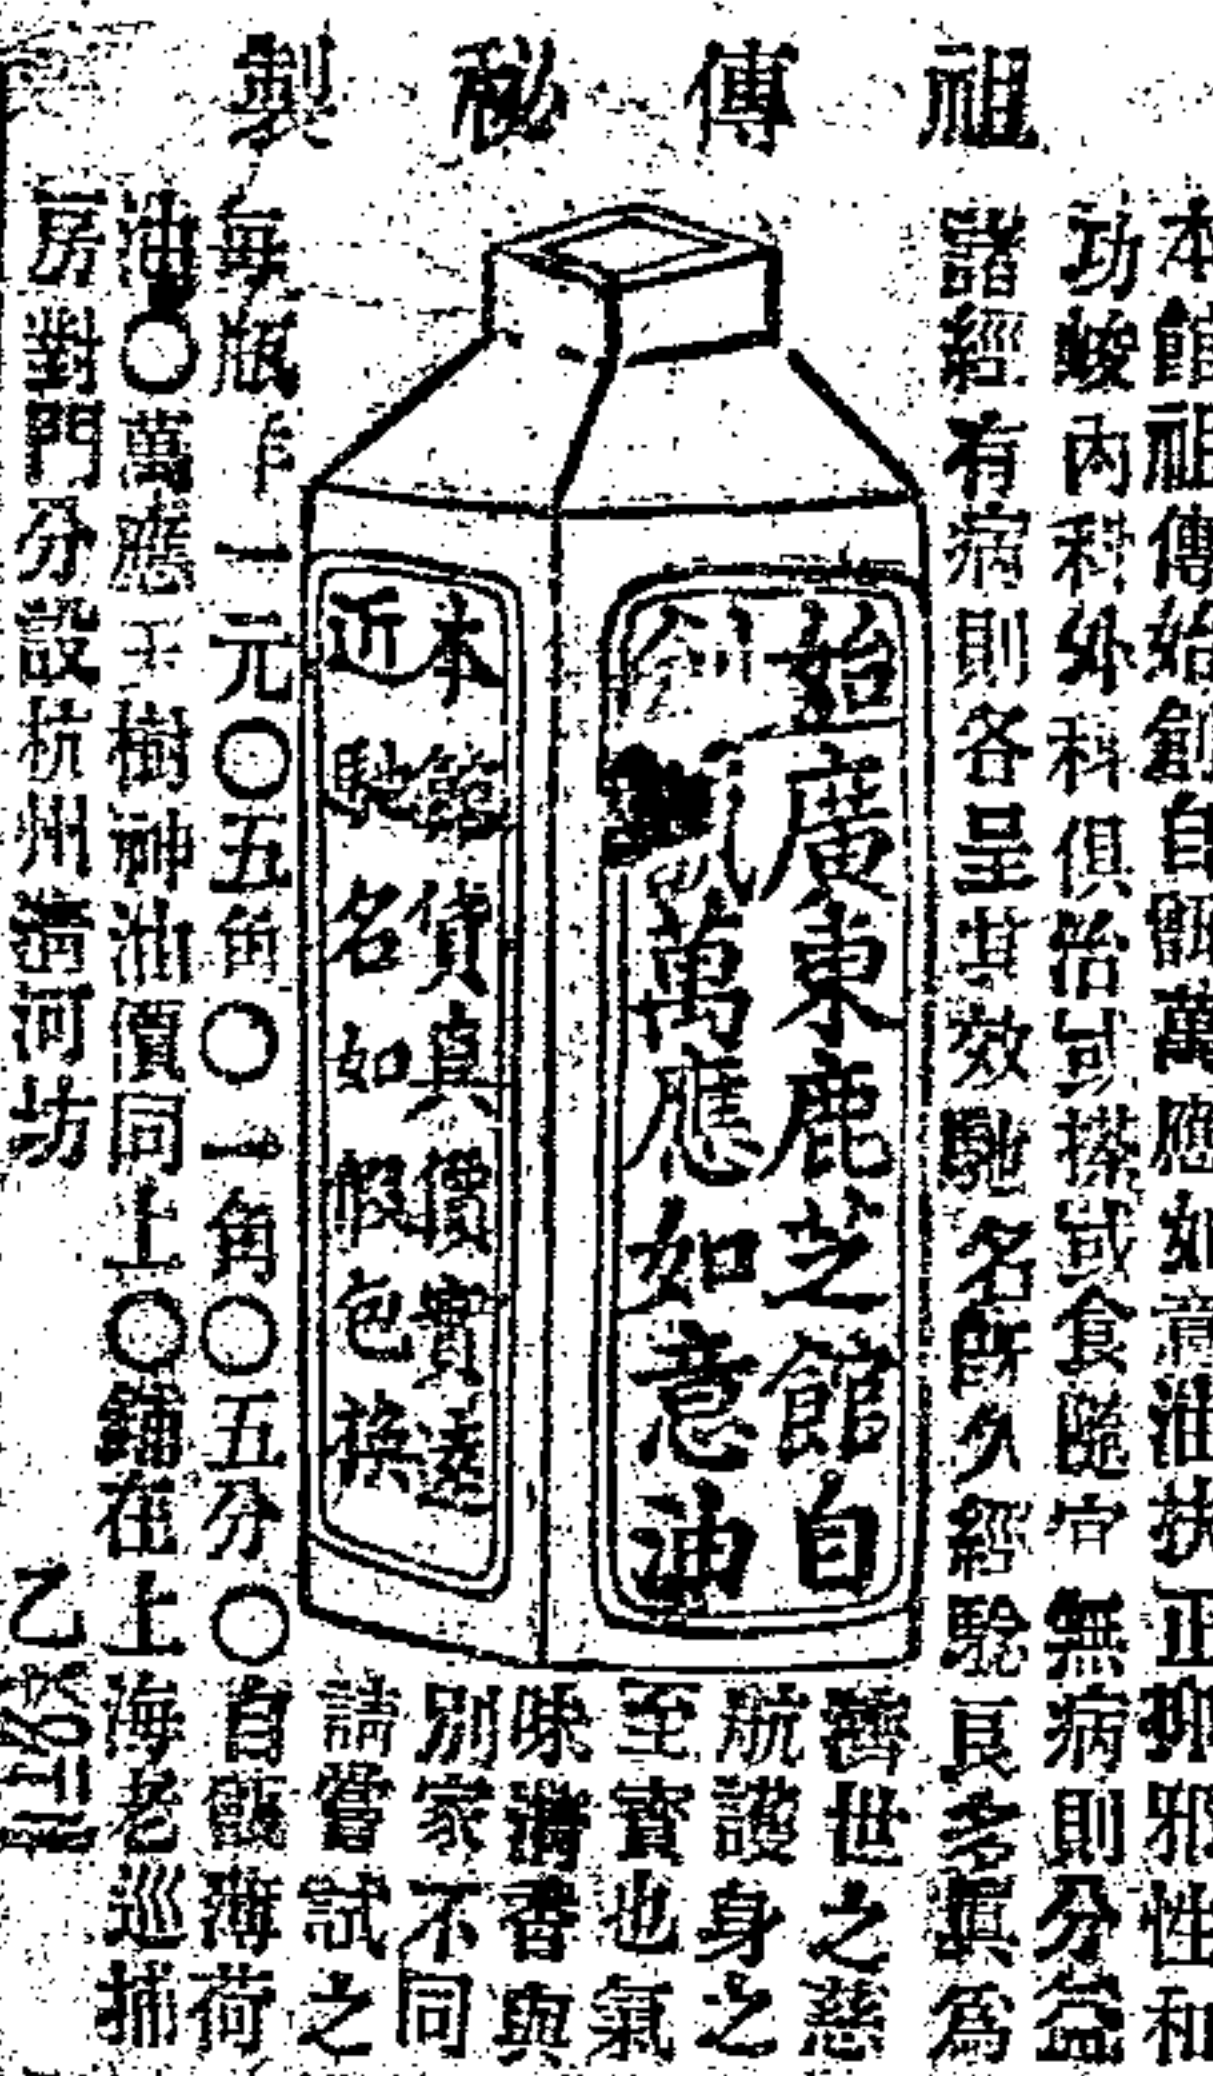 祖傳秘製
本館祖傳始創自甑萬應如意油扶正抑邪性和
功峻內科外科俱治或搽或食隨宜無病則分益
諸經有病則各呈其效馳名所久經驗良多眞爲
濟世之慈
航護身之
至寶也氣
味清香與
別家不同
請嘗試之
始廣東鹿芝館自
創
萬應如意油
本館貨真價實遠
近馳名如假包換
每瓶一元〇五角〇一角〇五分〇自甑薄荷
油〇萬應玉樹神油價同上〇鋪在上海老巡捕
房對門分設杭州清河坊
乙